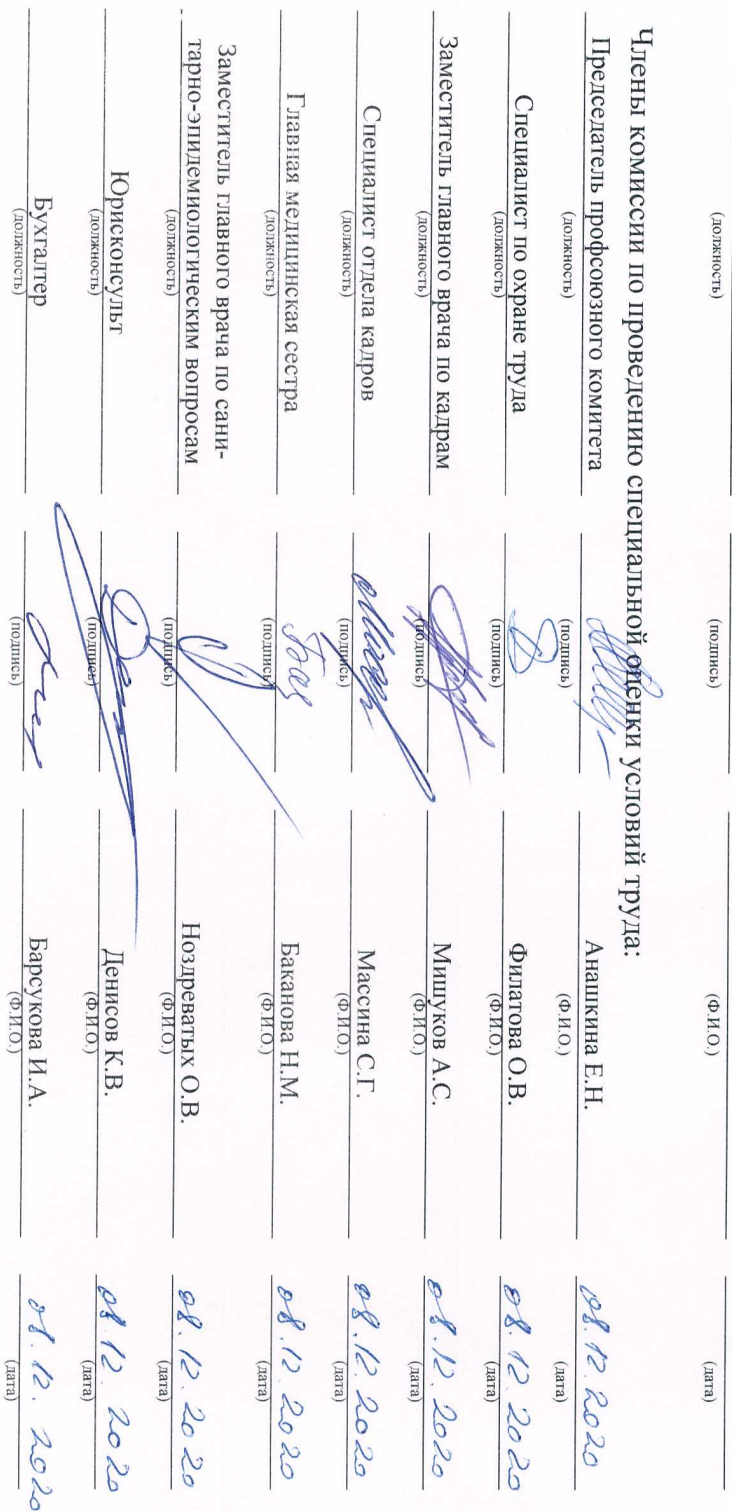 (должность) (подпись) (Ф.И.О.) (дата)
Члены комиссии по проведению специальной оценки условий труда:
Председатель профсоюзного комитета Анашкина Е.Н. 08.12.2020
(должность) (подпись) (Ф.И.О.) (дата)
Специалист по охране труда Филатова О.В. 08.12.2020
(должность) (подпись) (Ф.И.О.) (дата)
Заместитель главного врача по кадрам Мишуков А.С. 08.12.2020
(должность) (подпись) (Ф.И.О.) (дата)
Специалист отдела кадров Массина С.Г. 08.12.2020
(должность) (подпись) (Ф.И.О.) (дата)
Главная медицинская сестра Баканова Н.М. 08.12.2020
(должность) (подпись) (Ф.И.О.) (дата)
Заместитель главного врача по сани-
тарно-эпидемиологическим вопросам Ноздреватых О.В. 08.12.2020
(должность) (подпись) (Ф.И.О.) (дата)
Юрисконсульт Денисов К.В. 08.12.2020
(должность) (подпись) (Ф.И.О.) (дата)
Бухгалтер Барсукова И.А. 08.12.2020
(должность) (подпись) (Ф.И.О.) (дата)